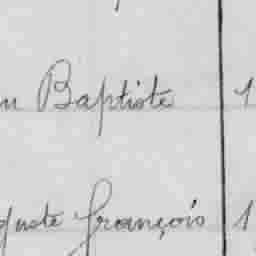 n Baptiste 1
guste françois 1